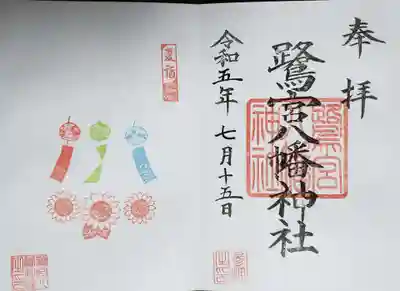 奉拝
鷺宮八幡神社
令和五年 七月十五日
鷺宮
神社
夏詣